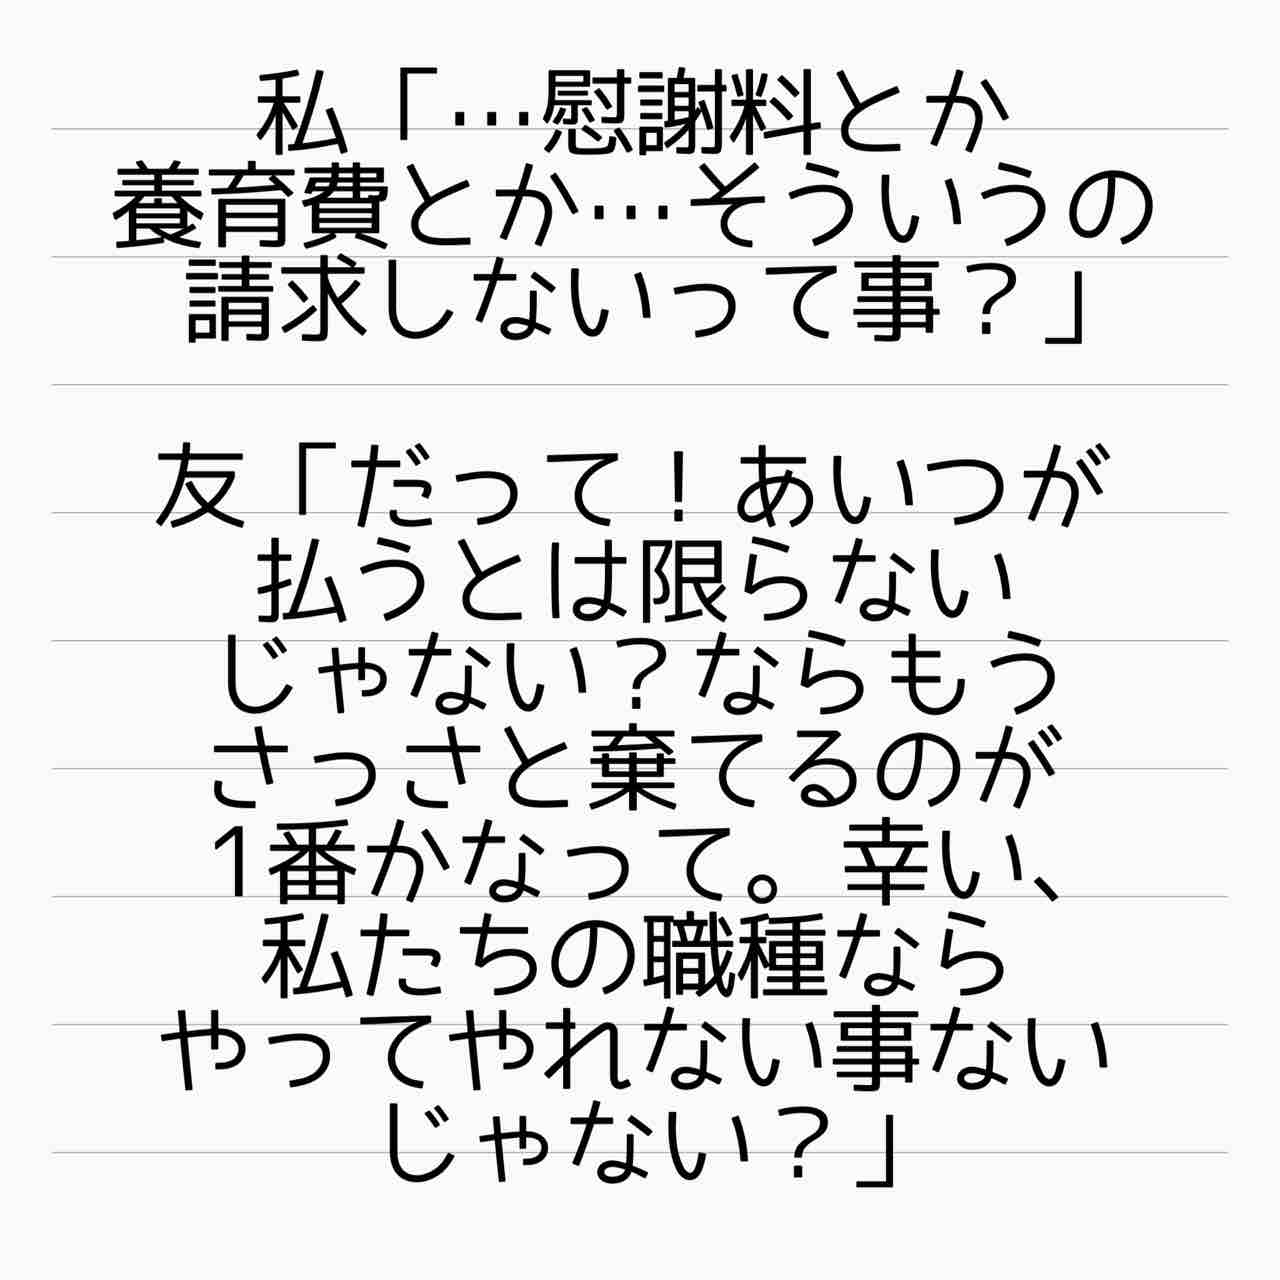 私「…慰謝料とか
養育費とか…そういうの
請求しないって事？」
友「だって！あいつが
払うとは限らない
じゃない？ならもう
さっさと棄てるのが
1番かなって。幸い、
私たちの職種なら
やってやれない事ない
じゃない？」